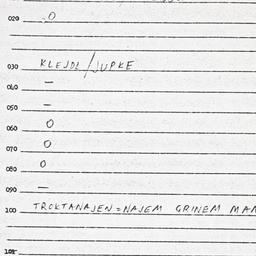 020 O
030 KLEJDE/JUPKE
040 —
050 —
060 O
070 O
080 O
090 —
100 TROKTANAJEN = NAJEM GRINEM MAM
105